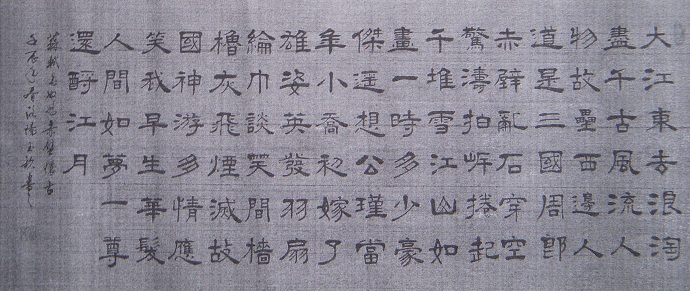 大江東去浪淘
盡千古風流人
物故壘西邊人
道是三國周郎
赤壁亂石穿空
驚濤拍岸捲起
千堆雪江山如
畫一時多少豪
傑遥想公瑾當
年小喬初嫁了
雄姿英發羽扇
綸巾談笑間檣
櫓灰飛煙滅故
國神游多情應
笑我早生華髮
人間如夢一尊
還酹江月
蘇軾念奴嬌赤壁懷古